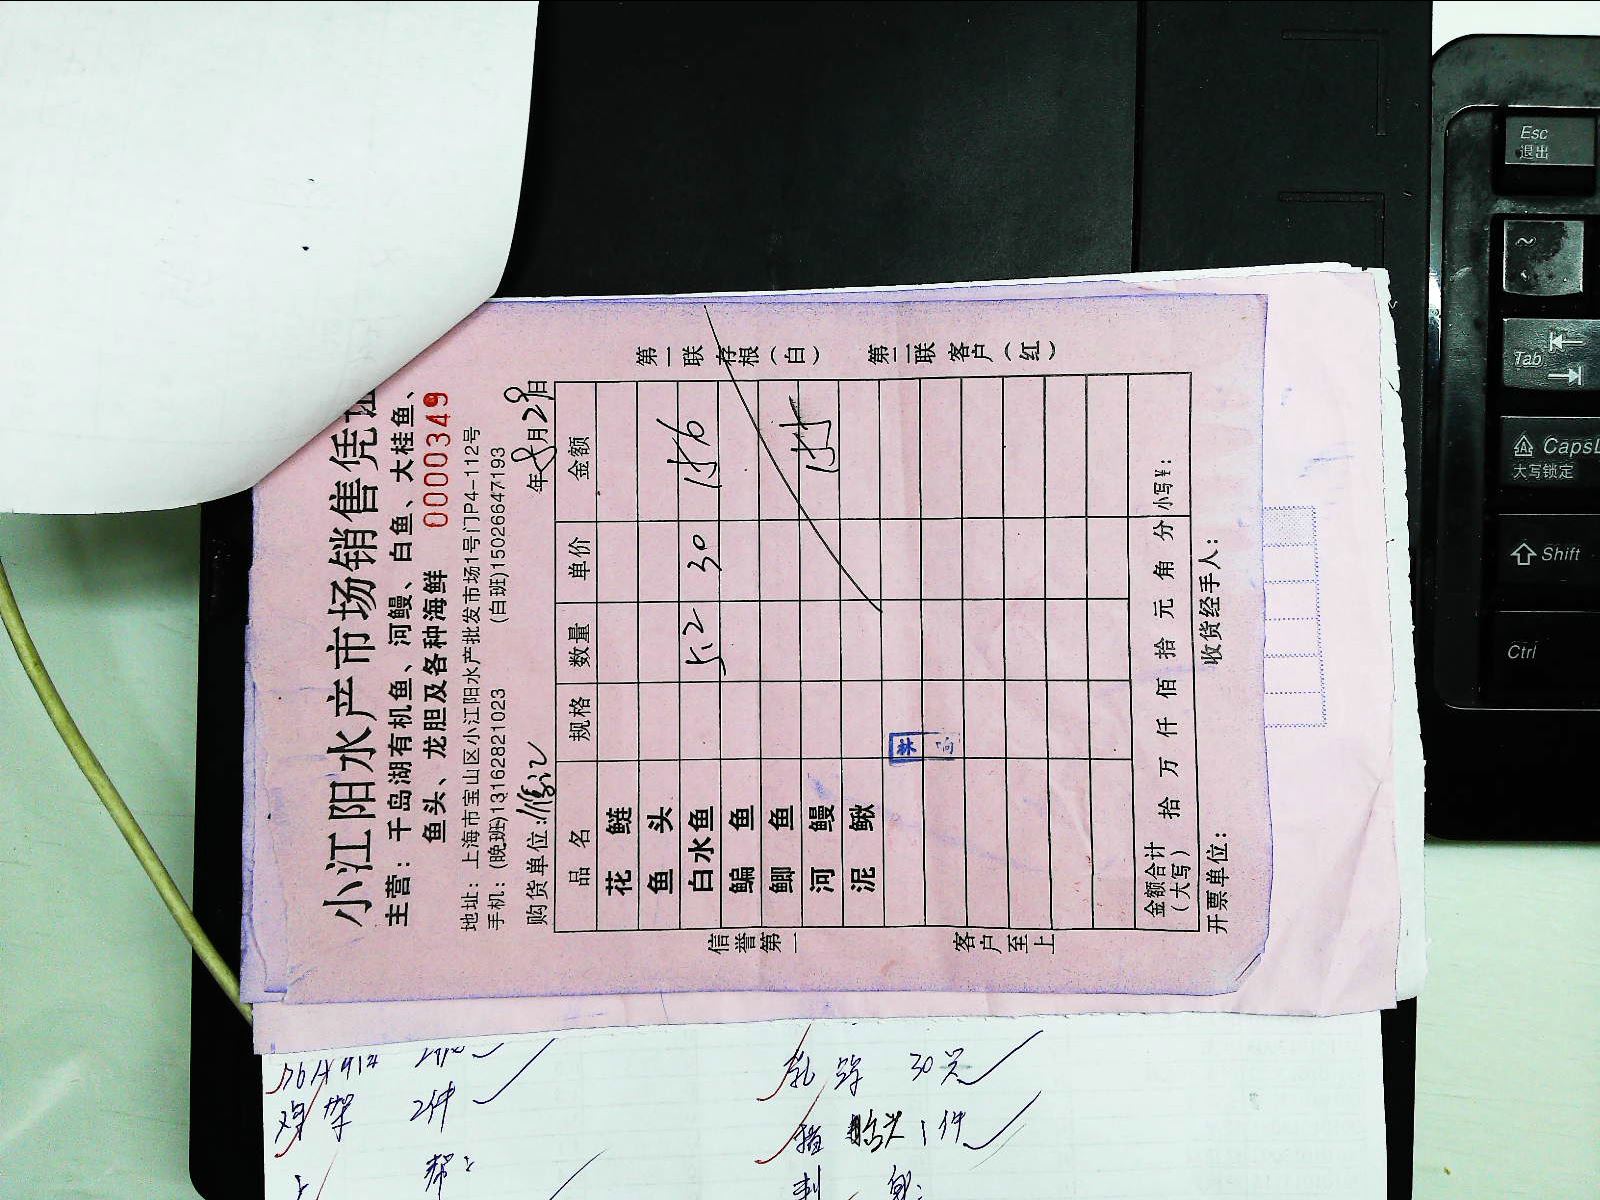 小江阳水产市场销售凭证
主营：千岛湖有机鱼、河鳗、白鱼、大桂鱼、
鱼头、龙胆及各种海鲜 0000349
地址：上海市宝山区小江阳水产批发市场1号门P4-112号
手机：(晚班)13162821023 (白班)15026647193
购货单位： 年8月29日
品名 规格 数量 单价 金额
花鲢
鱼头
白水鱼 5.2 30 156
鳊鱼
鲫鱼
河鳗 155
泥鳅
金额合计（大写） 拾 万 仟 佰 拾 元 角 分 小写¥：
开票单位： 收货经手人：
信誉第一 客户至上
第一联 存根（白） 第二联 客户（红）
Esc
退出
~
Tab
CapsL
大写锁定
Shift
Ctrl
鸡架 2件
30只
1件